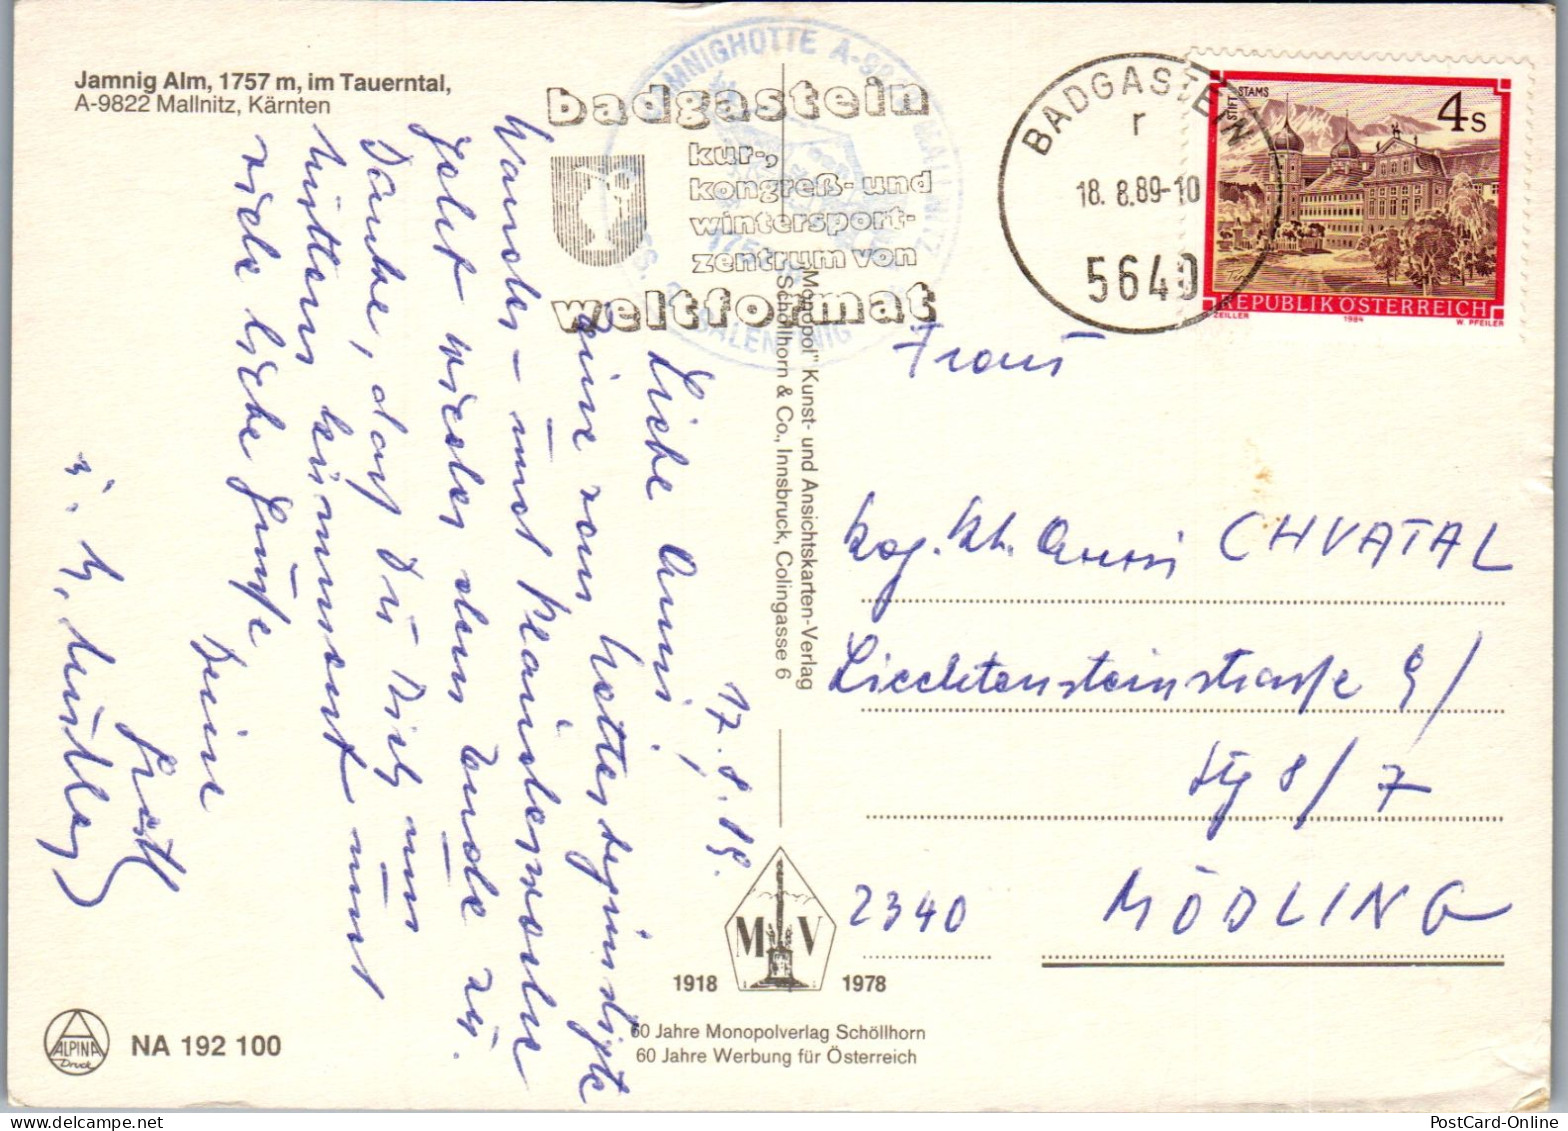 Jamnig Alm, 1757 m, im Tauerntal,
A-9822 Mallnitz, Kärnten
badgastein
kur-,
kongreß- und
wintersport-
zentrum von
weltformat
BADGASTEIN
r
18. 8.89-10
5640
STIFT STAMS
4 S
REPUBLIK ÖSTERREICH
ZEILLER 1984 W. PFEILER
17. 8. 89.
Liebe Anni!
eine vom Wetter begünstigte
Wander- und Plauderwoche
geht wieder dem Ende zu.
Danke, daß Du Dich um
Mutter kümmerst und
viele liebe Grüße
Deine
"Monopol" Kunst- und Ansichtskarten-Verlag
Schöllhorn & Co., Innsbruck, Colingasse 6
Frau
Anni CHVATAL
Liechtensteinstraße 9/
Stg 8/7
2340 MÖDLING
M V
1918 1978
60 Jahre Monopolverlag Schöllhorn
60 Jahre Werbung für Österreich
ALPINA
Druck
NA 192 100
PostCard-Online